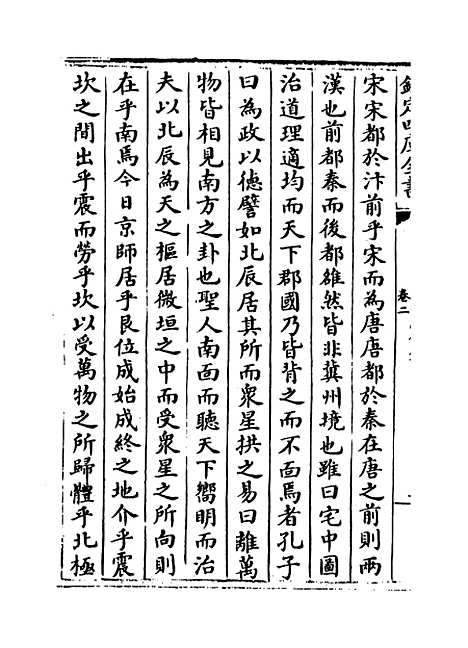 欽定四庫全書
卷二
宋宋都於汴前乎宋而為唐唐都於秦在唐之前則兩
漢也前都秦而後都雒然皆非冀州境也雖曰宅中圖
治道理適均而天下郡國乃皆背之而不面焉者孔子
曰為政以德譬如北辰居其所而衆星拱之易曰離萬
物皆相見南方之卦也聖人南面而聽天下嚮明而治
夫以北辰為天之樞居微垣之中而受衆星之所向則
在乎南焉今日京師居乎艮位成始成終之地介乎震
坎之間出乎震而勞乎坎以受萬物之所歸體乎北極